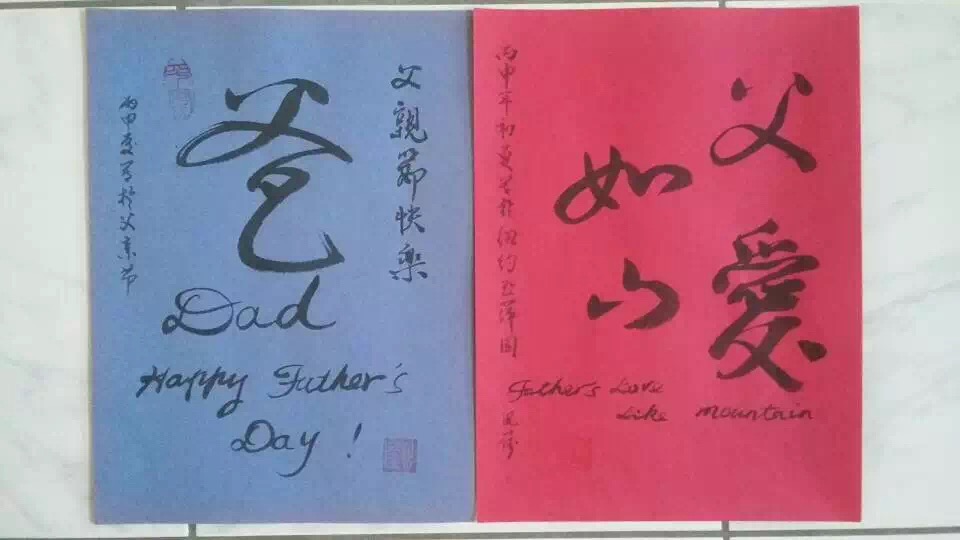 父親節快樂
爸
丙申夏書於父亲节
Dad
Happy Father's
Day!
父愛
如山
丙申年初夏
Father's Love
Like mountain